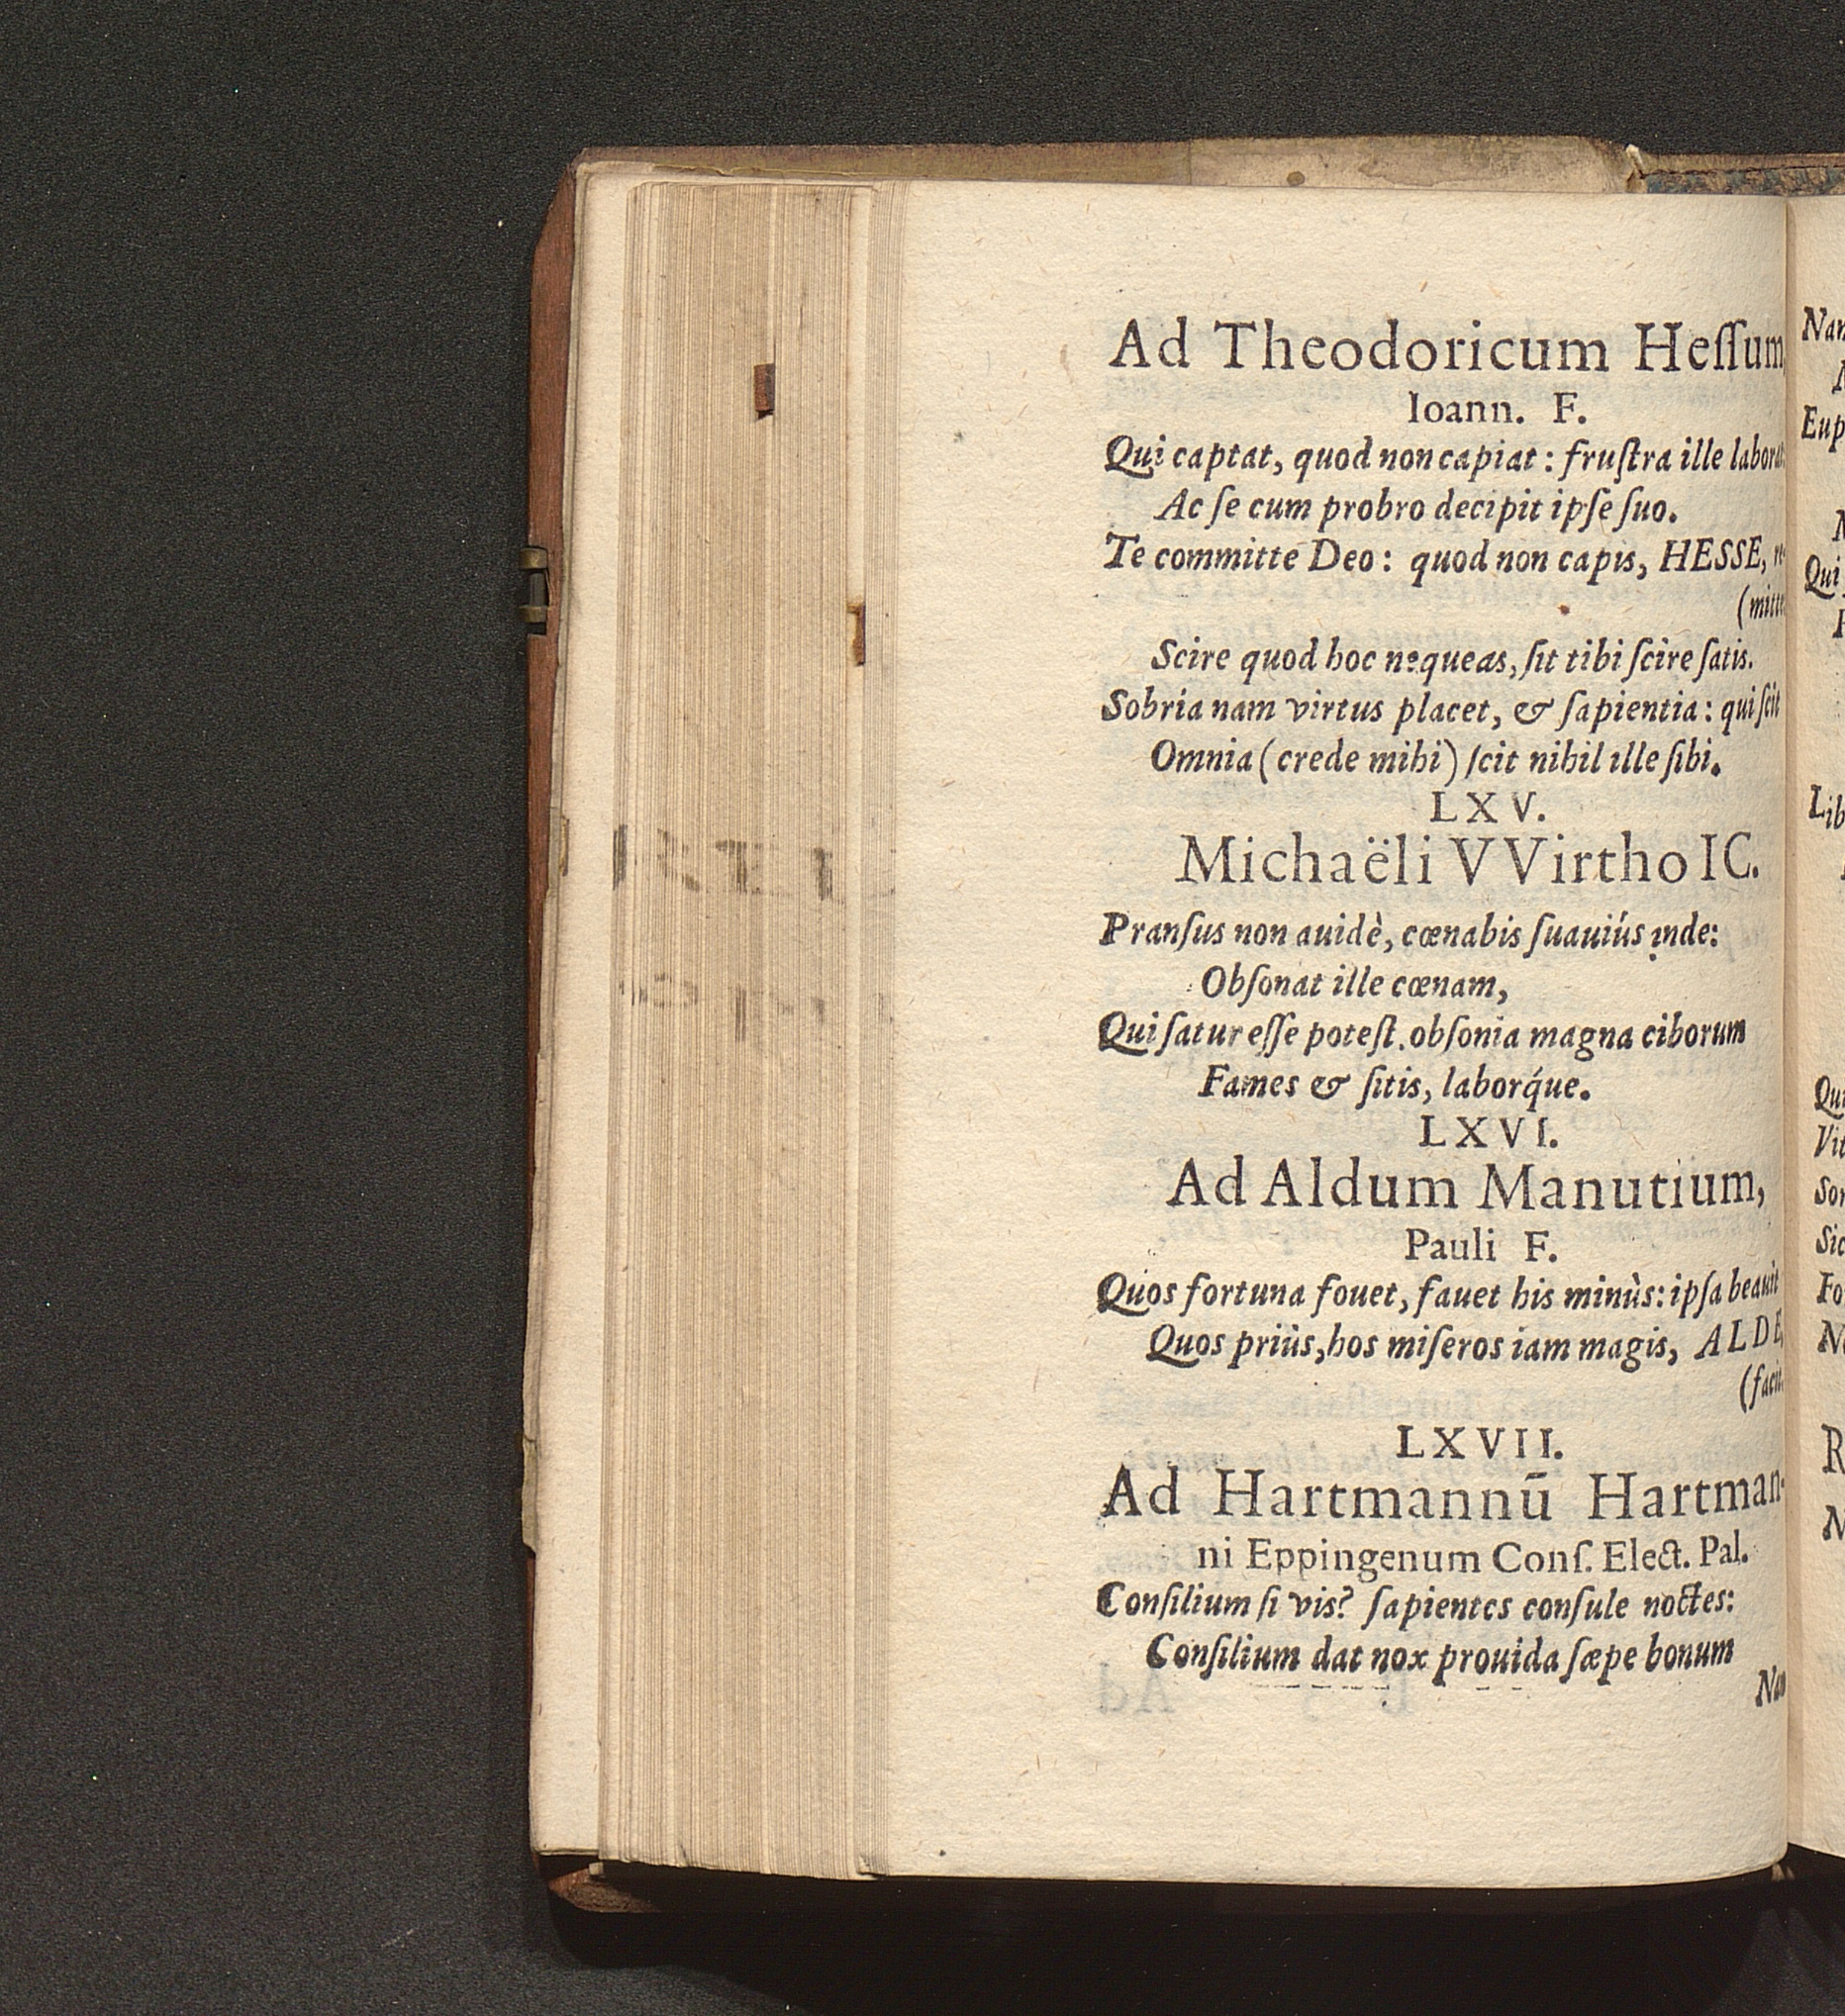 Ad Theodoricum Heſſum,
Ioann. F.
Qui captat, quod non capiat: fruſtra ille laborat:
Ac ſe cum probro decipit ipſe ſuo.
Te committe Deo: quod non capis, HESSE, re-
(mitte
Scire quod hoc nequeas, ſit tibi ſcire ſatis.
Sobria nam virtus placet, & ſapientia: qui ſcit
Omnia (crede mihi) ſcit nihil ille ſibi.
LXV.
Michaëli VVirtho IC.
Pranſus non auidè, cœnabis ſuauiús inde:
Obſonat ille cœnam,
Qui ſatur eſſe poteſt. obſonia magna ciborum
Fames & ſitis, laborq́ue.
LXVI.
Ad Aldum Manutium,
Pauli F.
Quos fortuna fouet, fauet his minùs: ipſa beauit
Quos priùs, hos miſeros iam magis, ALDE,
(facit.
LXVII.
Ad Hartmannū Hartman-
ni Eppingenum Conſ. Elect. Pal.
Conſilium ſi vis? ſapientes conſule noctes:
Conſilium dat nox prouida ſæpe bonum
Nam
Eup
Qui
Lib
Qui
Vit
Sor
Sic
Fo